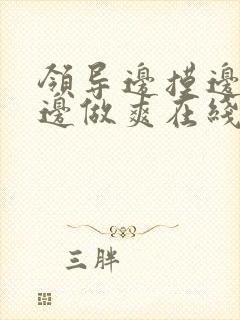 領导邊摸邊
邊做爽在綫
三胖